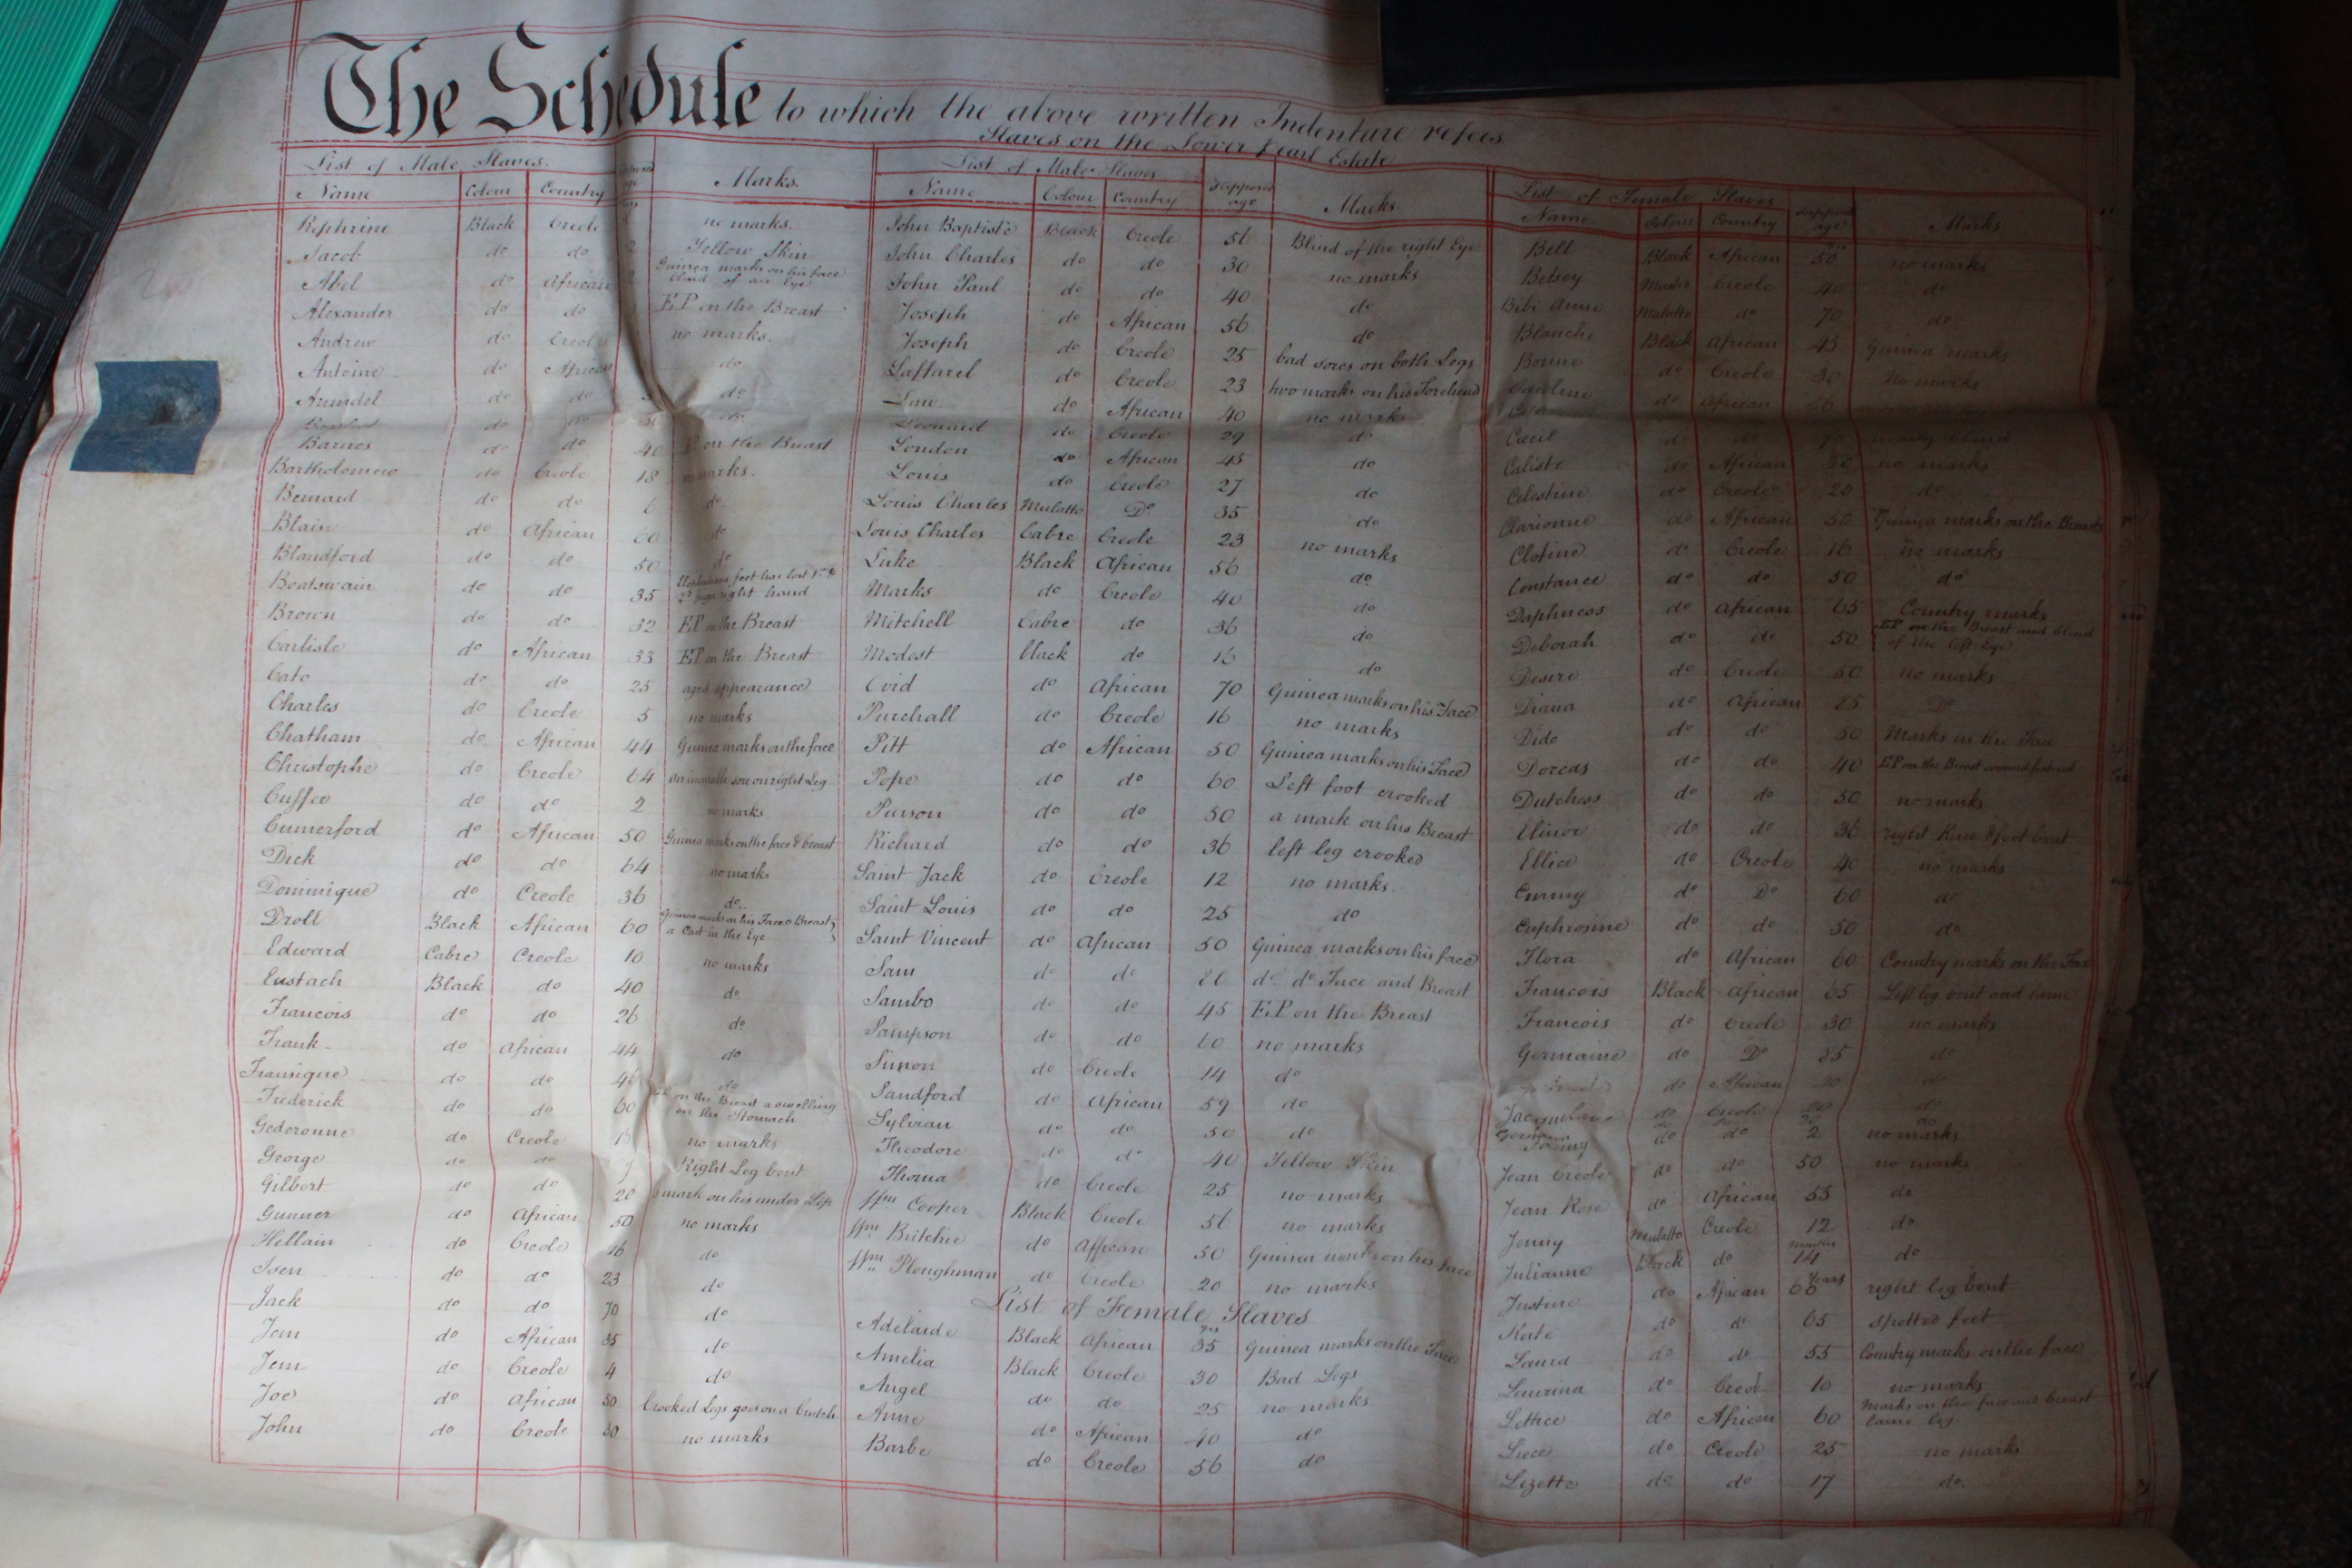 The Schedule to which the above written Indenture refers
Slaves on the Lower Pearl Estate
List of Male Slaves.
Name Colour Country Marks.
Rephrine Black Creole no marks.
Jacob do do 2 Yellow Skin
Abel do African Guinea marks on his face blind of an Eye
Alexander do do EP on the Breast
Andrew do Creole no marks.
Antoine do African do
Arundel do do do
do do do
Barnes do do 40 EP on the Breast
Bartholomew do Creole 18 no marks.
Bernard do do 6 do
Blaise do African 60 do
Blandford do do 50 do
Boatswain do do 35 foot has lost 1st & 2d finger right hand
Brown do do 32 EP on the Breast
Carlisle do African 33 EP on the Breast
Cato do do 25 aged appearance
Charles do Creole 5 no marks
Chatham do African 44 Guinea marks on the face
Christophe do Creole 64 sore on right Leg
Cuffee do do 2 no marks
Cumerford do African 50 Guinea marks on the face & breast
Dick do do 64 no marks
Dominique do Creole 36 do
Droll Black African 60 Guinea marks on his Face & Breast a Cast in the Eye
Edward Cabre Creole 10 no marks
Eustach Black do 40 do
Francois do do 26 do
Frank do African 44 do
Fransique do do do
Frederick do do 60 on the Breast a swelling on the Stomach
Gederonne do Creole no marks
George do do Right Leg bent
Gilbert do do 20 mark on his under Lip
Gunner do African 50 no marks
Hellain do Creole 16 do
Isen do do 23 do
Jack do do 70 do
Jem do African 35 do
Jem do Creole 4 do
Joe do African 30 Crooked Legs goes on a Crutch
John do Creole 30 no marks
List of Male Slaves
Name Colour Country Supposed age Marks
John Baptiste Black Creole 56 Blind of the right Eye
John Charles do do 30 no marks
John Paul do do 40 do
Joseph do African 56 do
Joseph do Creole 25 bad sores on both Legs
Laffarel do Creole 23 two marks on his Forehead
Law do African 40 no marks
Leonard do Creole 29 do
London do African 45 do
Louis do Creole 27 do
Louis Charles Mulatto Do 35 do
Louis Charles Cabre Creole 23 no marks
Luke Black African 56 do
Marks do Creole 40 do
Mitchell Cabre do 36 do
Modest black do 16 do
Ovid do African 70 Guinea marks on his Face
Purchall do Creole 16 no marks
Pitt do African 50 Guinea marks on his Face
Pope do do 60 Left foot crooked
Purson do do 50 a mark on his Breast
Richard do do 36 left leg crooked
Saint Jack do Creole 12 no marks.
Saint Louis do do 25 do
Saint Vincent do African 50 Guinea marks on his face
Sam do do do do Face and Breast
Sambo do do 45 EP on the Breast
Sampson do do 60 no marks
Simon do Creole 14 do
Sandford do African 59 do
Sylvian do do 50 do
Theodore do do 40 Yellow Skin
Thoma do Creole 25 no marks
Wm Cooper Black Creole 56 no marks
Wm Britchie do African 50 Guinea marks on his face
Wm Ploughman do Creole 20 no marks
List of Female Slaves
Adelaide Black African Yrs 35 Guinea marks on the Face
Amelia Black Creole 30 Bad Legs
Angel do do 25 no marks
Anne do African 40 do
Barbe do Creole 56 do
List of Female Slaves
Name Colour Country Supposed age Marks
Bell Black African Yrs 50 no marks
Betsey Creole 40 do
Bibi Anne Mulatto do 70 do
Blanche Black African 45 Guinea marks
Bonne do Creole 30 No marks
Caroline do African
Cecil do do nearly blind
Caliste do African 30 no marks
Celestine do Creole 20 do
Clarionne do African 50 Guinea marks on the Breasts
Clotine do Creole 16 no marks
Constance do do 50 do
Daphness do African 65 Country marks
Deborah do do 50 EP on the Breast and blind of the left Eye
Desire do Creole 50 no marks
Diana do African 85 Do
Dido do do 50 Marks in the Face
Dorcas do do 40 EP on the Breast
Dutchess do do 50 no marks
Elinor do do 36 right Knee & foot bent
Ellice do Creole 40 no marks
Emmy do Do 60 do
Euphrosine do do 50 do
Flora do African 60 Country marks on the Face
Francois Black African 65 Left leg bent and lame
Francois do Creole 30 no marks
Germaine do Do 85 do
do African do
Jacqueline do Creole 20 do
do do 2 no marks
Jean Creole do do 50 no marks
Jean Rose do African 55 do
Jenny Mulatto Creole 12 do
Julianne black do months 14 do
Justine do African Years right leg bent
Kate do do 65 Spotted feet
Laura do do 55 Country marks on the face
Laurina do Creol 10 no marks
Lettice do African 60 Marks on the face and breast lame leg
Luce do Creole 25 no marks
Lizette do do 17 do.